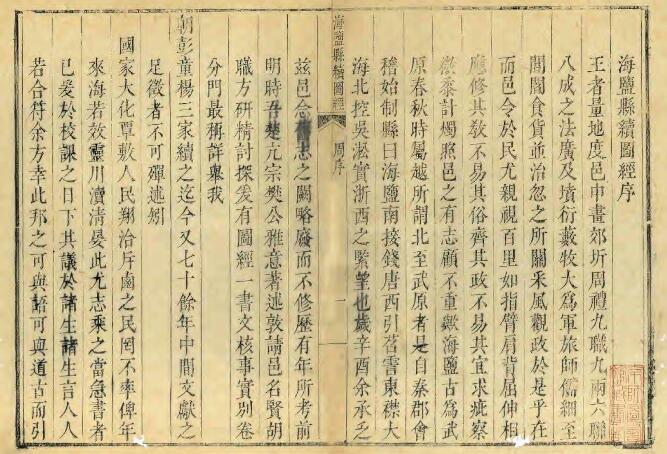 海鹽縣續圖經序
王者量地度邑中畫郊圻周禮九職九兩六聯
八成之法廣及墳衍藪牧大為軍旅師儒細至
閭閻食貨並治忽之所關采風觀政於是乎在
而邑令於民尤親視百里如指臂肩背屈伸相
應修其教不易其俗齊其政不易其宜求疵察
黍計燭照邑之有志顧不重歟海鹽古為武
原春秋時屬越所謂北至武原者是自秦郡會
稽始制縣曰海鹽南接錢唐西引苕霅東襟大
海北控吳淞實浙西之緊望也歲辛酉余承乏
海鹽縣續圖經
周序
一
茲邑念舊志之闕略廢而不修歷有年所考前
明時吾楚亢宗樊公雅意著述敦請邑名賢胡
職方研精討探爰有圖經一書文核事實別卷
分門最稱詳舉我
朝彭童楊三家續之迄今又七十餘年中間文獻之
足徵者不可殫述矧
國家大化覃敷人民翔洽斥鹵之民罔不率俾年
來海若效靈川瀆清晏此尤志乘之當急書者
已爰於校課之日下其議於諸生諸生言人人
若合符余方幸此邦之可與語可與道古而引